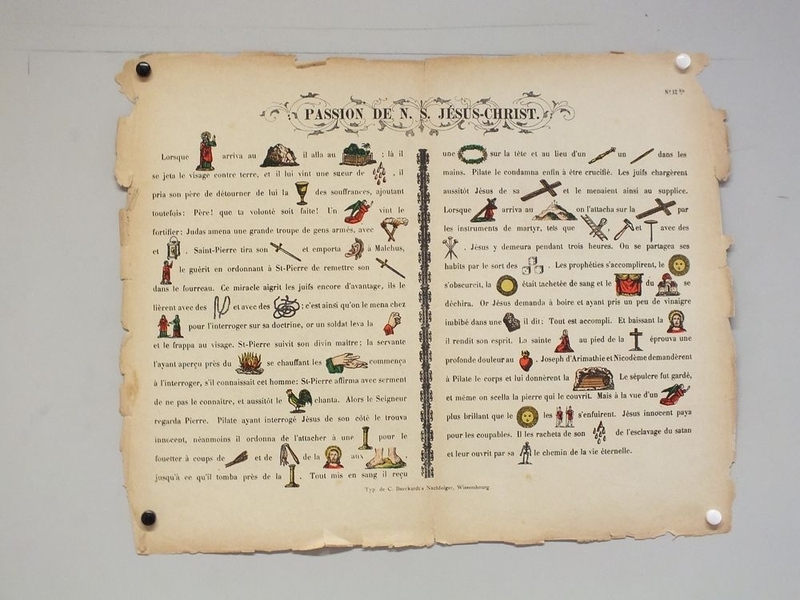 Nº 12 bis
PASSION DE N. S. JÉSUS-CHRIST.
Lorsque arriva au il alla au ; là il
se jeta le visage contre terre, et il lui vint une sueur de , il
pria son père de détourner de lui la des souffrances, ajoutant
toutefois: Père! que ta volonté soit faite! Un vint le
fortifier: Judas amena une grande troupe de gens armés, avec
et . Saint-Pierre tira son et emporta à Malchus,
le guérit en ordonnant à St-Pierre de remettre son
dans le fourreau. Ce miracle aigrit les juifs encore d'avantage, ils le
lièrent avec des et avec des ; c'est ainsi qu'on le mena chez
pour l'interroger sur sa doctrine, or un soldat leva la
et le frappa au visage. St-Pierre suivit son divin maître; la servante
l'ayant aperçu près du se chauffant les commença
à l'interroger, s'il connaissait cet homme: St-Pierre affirma avec serment
de ne pas le connaître, et aussitôt le chanta. Alors le Seigneur
regarda Pierre. Pilate ayant interrogé Jésus de son côté le trouva
innocent, néanmoins il ordonna de l'attacher à une pour le
fouetter à coups de et de de la aux ,
jusqu'à ce qu'il tomba près de la . Tout mis en sang il reçu
une sur la tête et au lieu d'un un dans les
mains. Pilate le condamna enfin à être crucifié. Les juifs chargèrent
aussitôt Jésus de sa et le menaient ainsi au supplice.
Lorsque arriva au on l'attacha sur la par
les instruments de martyr, tels que , et avec des
. Jésus y demeura pendant trois heures. On se partagea ses
habits par le sort des . Les prophéties s'accomplirent, le
s'obscurcit, la était tachetée de sang et le du se
déchira. Or Jésus demanda à boire et ayant pris un peu de vinaigre
imbibé dans une il dit: Tout est accompli. Et baissant la
il rendit son esprit. La sainte au pied de la éprouva une
profonde douleur au . Joseph d'Arimathie et Nicodème demandèrent
à Pilate le corps et lui donnèrent la Le sépulcre fut gardé,
et même on scella la pierre qui le couvrit. Mais à la vue d'un
plus brillant que le les s'enfuirent. Jésus innocent paya
pour les coupables. Il les racheta de son de l'esclavage du satan
et leur ouvrit par sa le chemin de la vie éternelle.
Typ. de C. Burckardt's Nachfolger, Wissembourg